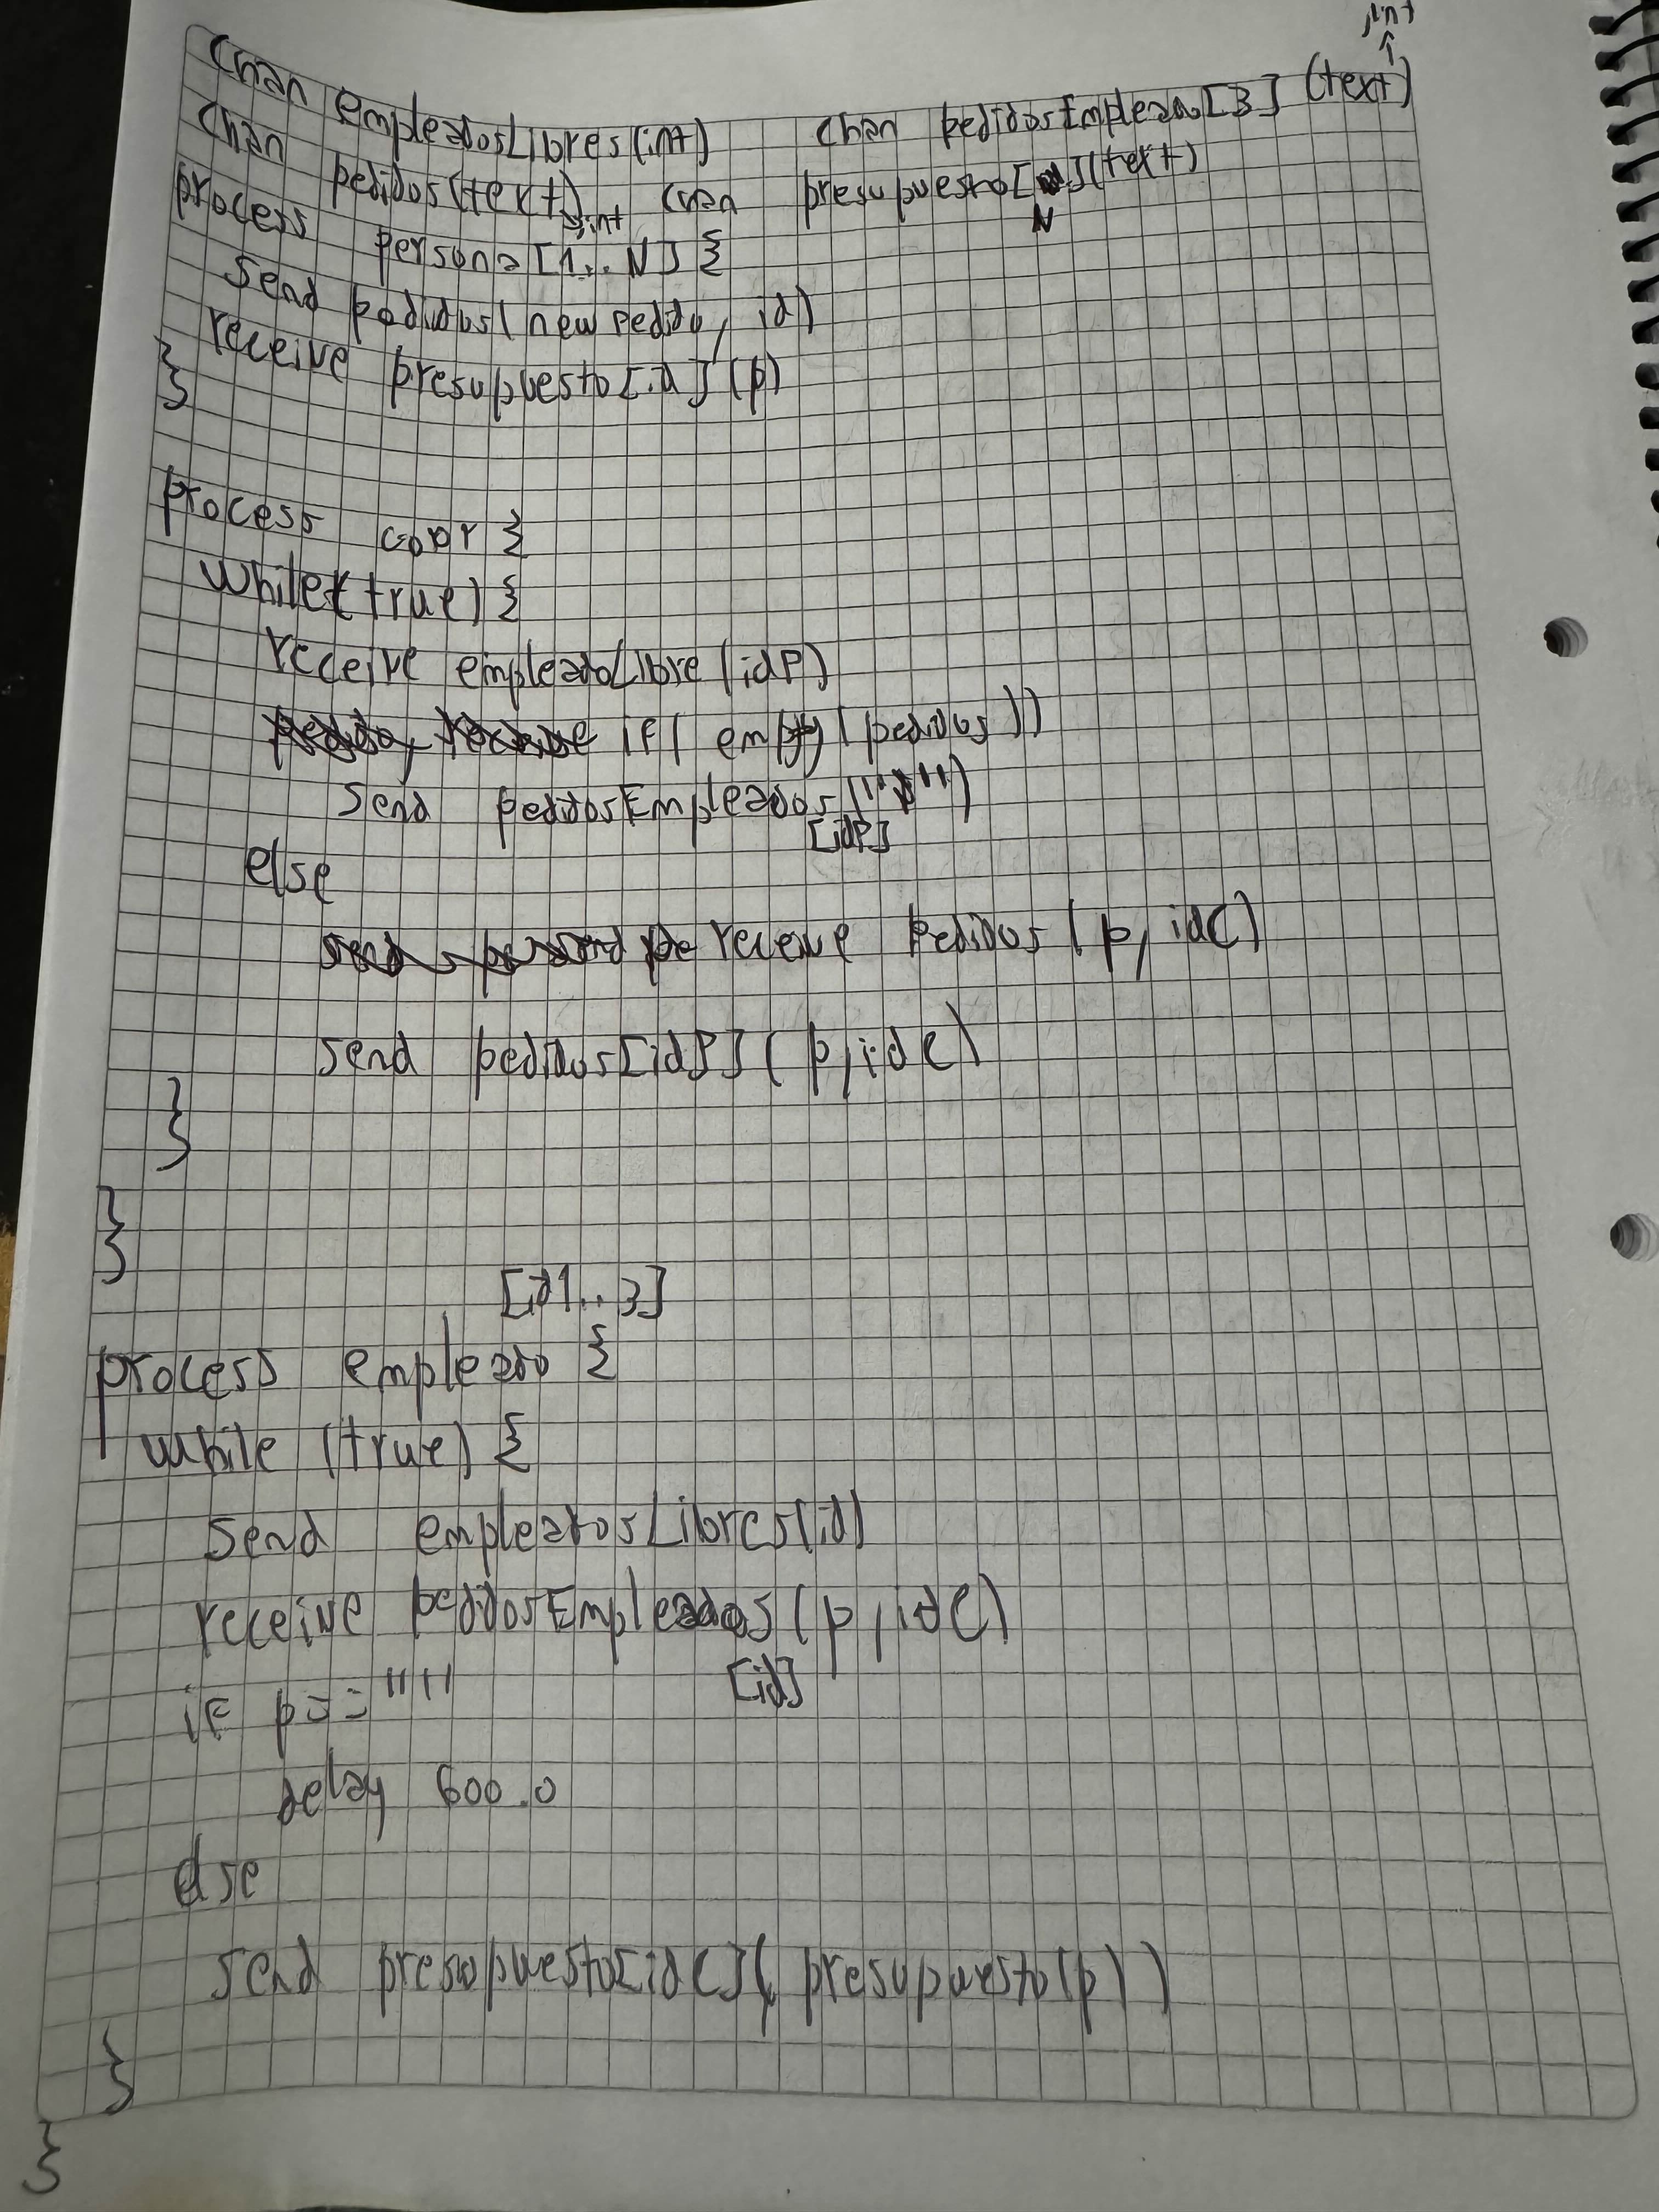 ,int
chan empleadosLibres(int) chan pedidosEmpleado[3] (text)
chan pedidos(text) ,int chan presupuesto[N](text)
process persona[1..N] {
send pedidos(newPedido, id)
receive presupuesto[id](p)
}
process coor {
while(true) {
receive empleadoLibre(idP)
if( empty(pedidos))
send pedidosEmpleados [idP]
else
receive Pedidos(p, idC)
send pedidos[idP](p,idC)
}
}
[id1..3]
process empleado {
while (true) {
send empleadosLibres(id)
receive pedidosEmpleados(p,idC)
[id]
if p==""
delay 600.0
else
send presupuesto[idC](presupuesto(p))
}
}